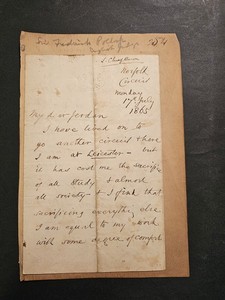 Sir Frederick Pollock
English Judge
Norfolk
Circuit
Monday
17th July
1865
My dear Jordan
I have lived on to
go another circuit & here
I am at Leicester – but
it has cost me the sacrifice
of all study & almost
all society – & I find that
sacrificing everything else
I am equal to my work
with some degree of comfort